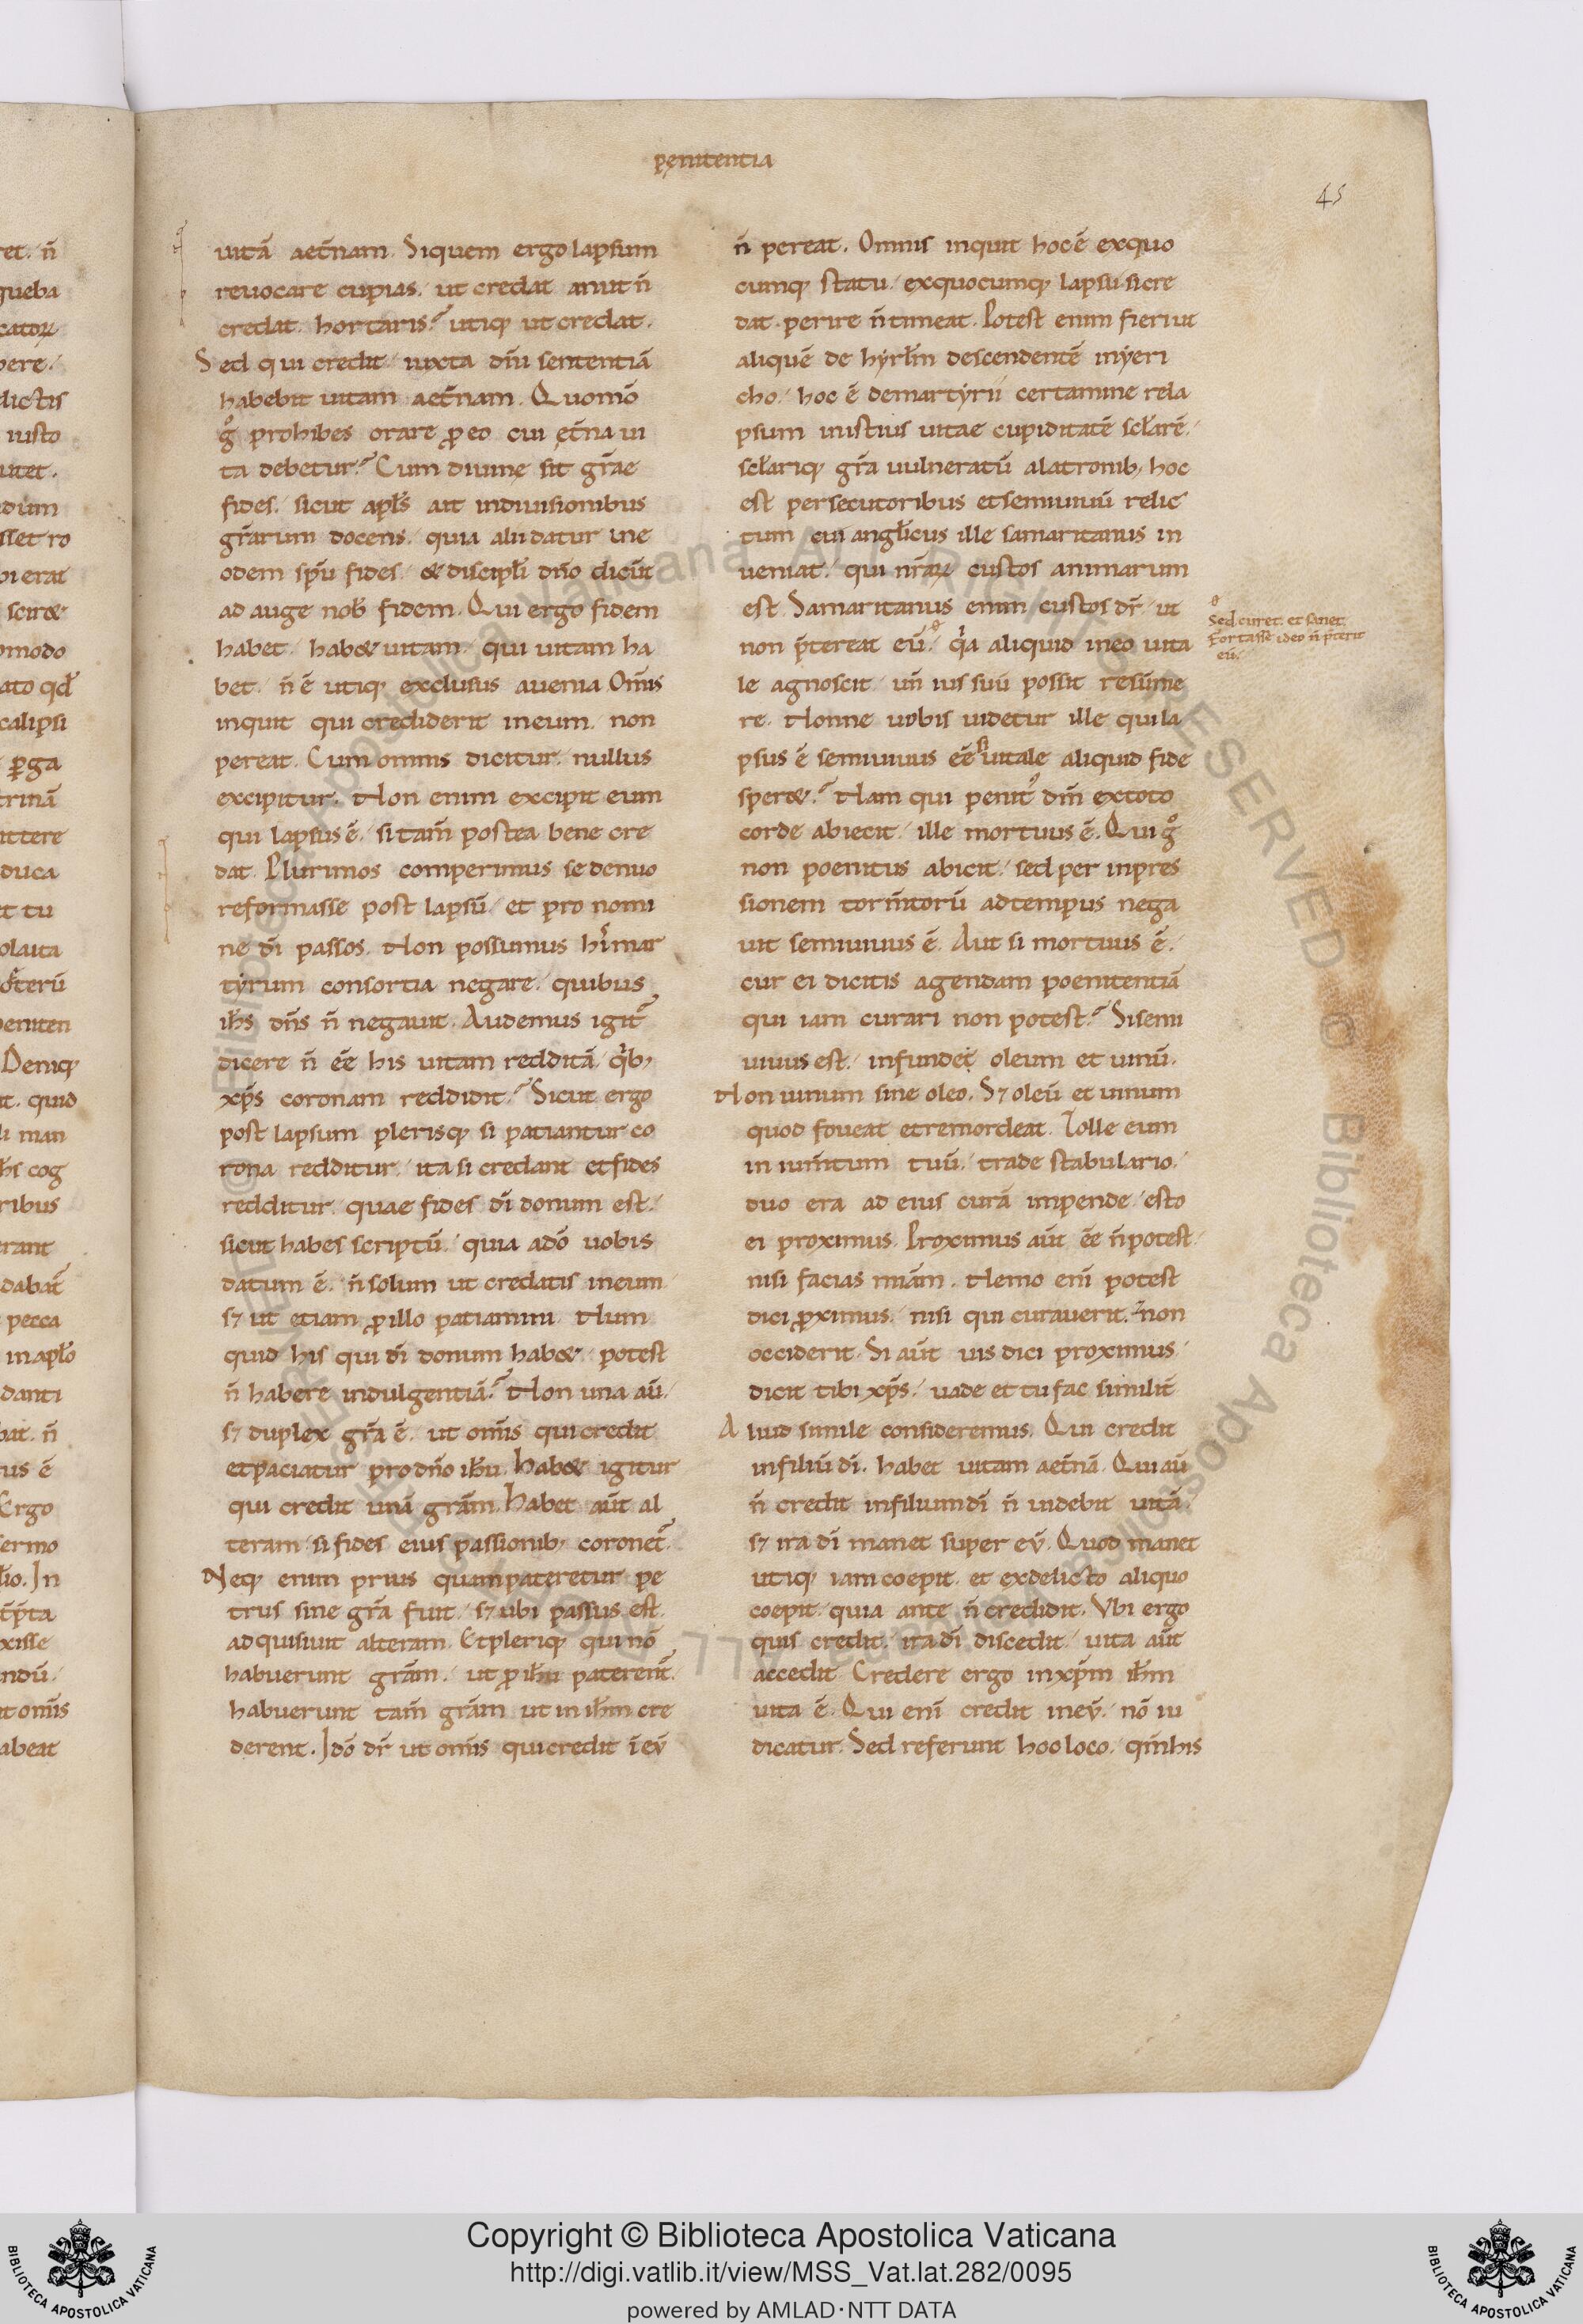 pęnitentia
45
uitā aet̄nam. Siquem ergo lapsum
reuocare cupias. ut credat an ut n̄
credat hortaris? utiq; ut credat.
Sed qui credit iuxta dn̄i sententiā
habebit uitam aet̄nam. Quomō
gͦ prohibes orare ꝓ eo cui ęt̄na ui
ta debetur? Cum diuinę sit gr̄ae
fides. sicut apl̄s ait indiuisionibus
gr̄arum docens. quia alii datur ine
odem sp̄u fides. & discipl̄i dn̄o dicūt
ad auge nob̄ fidem. Qui ergo fidem
habet hab& uitam. qui uitam ha
bet n̄ ē utiq; exclusus auenia. Om̄is
inquit qui crediderit ineum. non
pereat. Cum omnis dicitur. nullus
excipitur. Non enim excipit eum
qui lapsus ē. si tam̄ postea bene cre
dat. Plurimos comperimus se denuo
reformasse post lapsū. et pro nomi
ne dī passos. Non possumus hi̅s mar
tyrum consortia negare. quibus
ih̄s dn̄s n̄ negauit. Audemus igit̄
dicere n̄ ēē his uitam redditā. qͥb;
xp̄s coronam reddidit? Sicut ergo
post lapsum plerisq; si patiantur co
rona redditur. ita si credant et fides
redditur. quae fides dī donum est.
sicut habes scriptū. quia adō uobis
datum ē. n̄ solum ut credatis ineum.
s; ut etiam ꝓ illo patiamini. Num
quid his qui dī donum hab& potest
n̄ habere indulgentiā? Non una aū.
s; duplex gr̄a ē. ut om̄is qui credit
et paciatur pro dn̄o ih̄u. Hab& igitur
qui credit unā gr̄am. Habet aūt al
teram. si fides eius passionib; coronet̄.
Neq; enim prius quam pateretur pe
trus sine gr̄a fuit. s; ubi passus est.
adquisiuit alteram. Et pleriq; qui nō
habuerunt gr̄am. ut ꝓ ih̄u paterent̄.
habuerunt tam̄ gr̄am ut in ih̄m cre
derent. Idō dr̄ ut om̄is qui credit ī eū
n̄ pereat. Omnis inquit hoc ē exquo
cumq; statu. exquocumq; lapsu. si cre
dat. perire n̄ timeat. Potest enim fieri ut
aliquē de hyrl̄m descendentē inyeri
cho. hoc ē demartyrii certamine rela
psum inistius uitae cupiditatē scl̄arē.
scl̄ariq; gr̄a uulneratū alatronib; hoc
est persecutoribus et semiuiuū relic
tum cui anglicus ille samaritanus in
ueniat. qui nr̄aꝝ custos animarum
est. Samaritanus enim custos dr̄. ut
non p̄tereat eū. qͥa aliquid ineo uita
le agnoscit. un̄ ius suū possit resūme
re. Nonne uobis uidetur ille qui la
psus ē semiuiuus ēē si uitale aliquid fide
sper&? Nam qui penitꝰ dm̄ extoto
corde abiecit. ille mortuus ē. Qui gͦ
non poenitus abicit. sed per inpres
sionem torm̄torū adtempus nega
uit semiuiuus ē. Aut si mortuus ē.
cur ei dicitis agendam poenitentiā
qui iam curari non potest? Si semi
uiuus est. infundet oleum et uinū.
Non uinum sine oleo. S; oleū et uinum
quod foueat et remordeat. Tolle eum
in ium̄tum tuū. trade stabulario.
duo era ad eius curā impende. esto
ei proximus. Proximus aūt ēē n̄ potest.
nisi facias mīam. Nemo enī potest
dici ꝓximus. nisi qui curauerit. non
occiderit. Si aūt uis dici proximus.
dicit tibi xp̄s. uade et tu fac similit̄
Aliud simile consideremus. Qui credit
infiliū dī. habet uitam aet̄nā. Qui aū
n̄ credit infilium dī n̄ uidebit uitā.
s; ira dī manet super eū. Quod manet
utiq; iam coepit. et exdelicto aliquo
coepit. quia ante n̄ credidit. Vbi ergo
quis credit. ira dī discedit. uita aūt
accedit. Credere ergo inxp̄m ih̄m
uita ē. Qui enī credit ineū. nō iu
dicatur. Sed referunt hoc loco. qm̄ his
Sed curet. et sanet
Fortasse ideo n̄ p̄terit
eū.
Copyright © Biblioteca Apostolica Vaticana
http://digi.vatlib.it/view/MSS_Vat.lat.282/0095
powered by AMLAD · NTT DATA
BIBLIOTECA APOSTOLICA VATICANA
BIBLIOTECA APOSTOLICA VATICANA